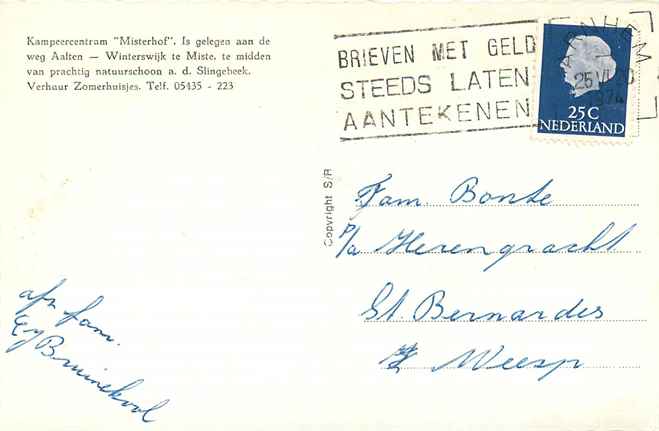 Kampeercentrum "Misterhof". Is gelegen aan de
weg Aalten — Winterswijk te Miste, te midden
van prachtig natuurschoon a. d. Slingebeek.
Verhuur Zomerhuisjes. Telf. 05435 - 223
BRIEVEN MET GELD
STEEDS LATEN
AANTEKENEN
ARNHEM
25 VI
1974
25 C
NEDERLAND
Copyright S/R
Fam. Bonte
p/a Herengracht
St. Bernardes
Weesp
afz fam.
Bruinekool